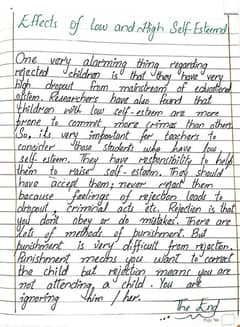 Effects of Low and High Self Esteemd
One very alarming thing regarding
rejected children is that they have very
high dropout from mainstream of educational
system. Researchers have also found that
children with low self-esteem are more
prone to commit more crimes than others.
So, its very important for teachers to
consider those students who have low
self-esteem. They have responsibility to help
them to raise self-esteem. They should
have accept them; never reject them
because feelings of rejection leads to
dropout, criminal acts etc. Rejection is that
you don't obey or do mistakes. There are
lots of methods of punishment. But
punishment is very difficult from rejection.
Punishment means you want to correct
the child but rejection means you are
not attending a child. You are
ignoring him / her.
The End